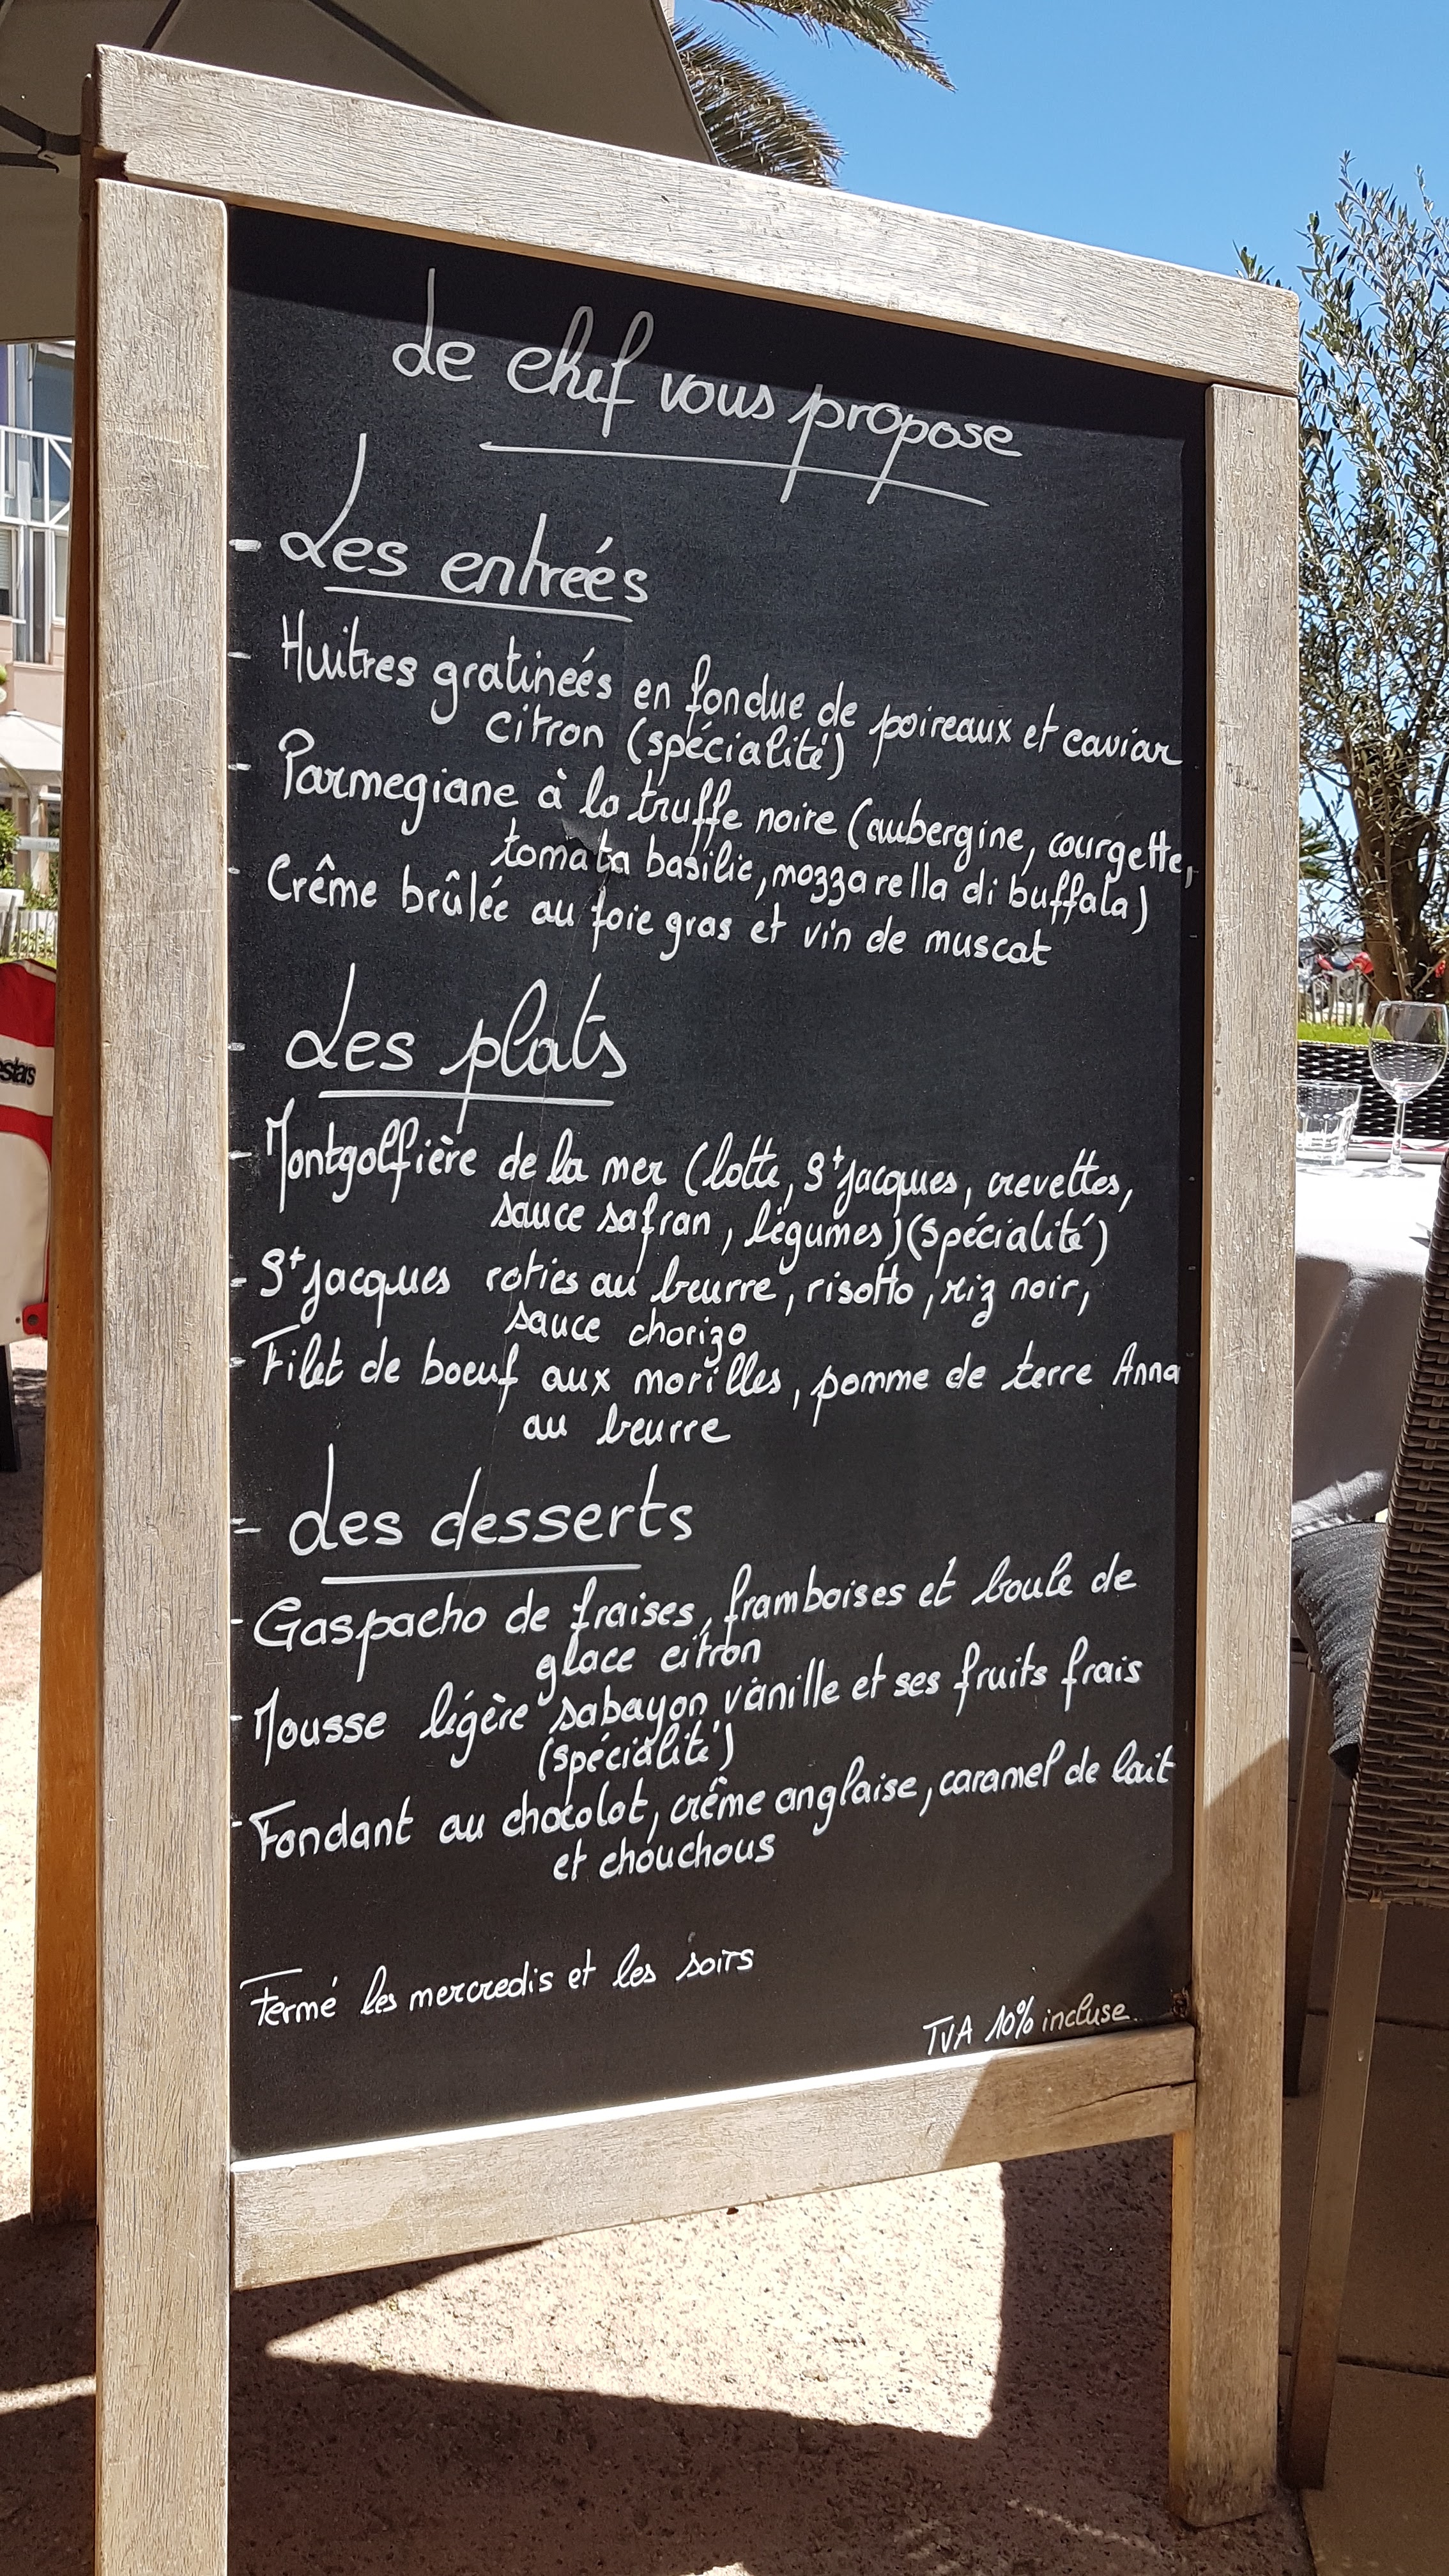 Le chef vous propose
- Les entreés
- Huitres gratineés en fondue de poireaux et caviar
citron (spécialité)
- Parmegiane à la truffe noire (aubergine, courgette,
tomata basilic, mozzarella di buffala)
- Crême brûlée au foie gras et vin de muscat
- Les plats
- Montgolfière de la mer (lotte, St jacques, crevettes,
sauce safran, légumes) (spécialité)
- St jacques roties au beurre, risotto, riz noir,
sauce chorizo
- Filet de boeuf aux morilles, pomme de terre Anna
au beurre
- Les desserts
- Gaspacho de fraises, framboises et boule de
glace citron
- Mousse légère sabayon vanille et ses fruits frais
(spécialité)
- Fondant au chocolat, crême anglaise, caramel de lait
et chouchous
Fermé les mercredis et les soirs
TVA 10% incluse.